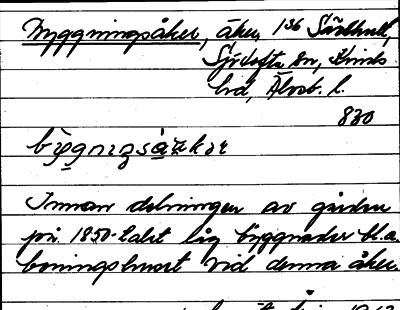 Byggningsåker, åker, 1³⁶ Särkhult,
Sjötofta sn, Kinds
hd, Älvsb. l.
830
bygnɪŋsåːkər
Innan delningen av gården
på 1850-talet låg byggnader bl.a.
boningshuset vid denna åker.